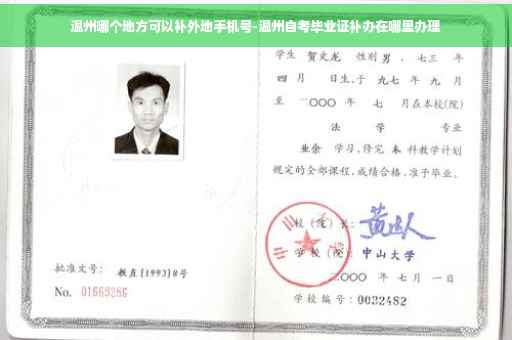 温州哪个地方可以补外地手机号-温州自考毕业证补办在哪里办理
学生 贺文龙 性别 男 、七三 年
四 月 日生,于 九七 年 九 月
至 二〇〇〇 年 七 月在本校(院)
法 学 专业
业余 学习,修完 本 科教学计划
规定的全部课程,成绩合格,准予毕业。
校(院)长:
学校(院): 中山大学
二〇〇〇 年 七 月 一 日
批准文号: 教直[1993]8号
No. 01663286
学校编号: 0032482